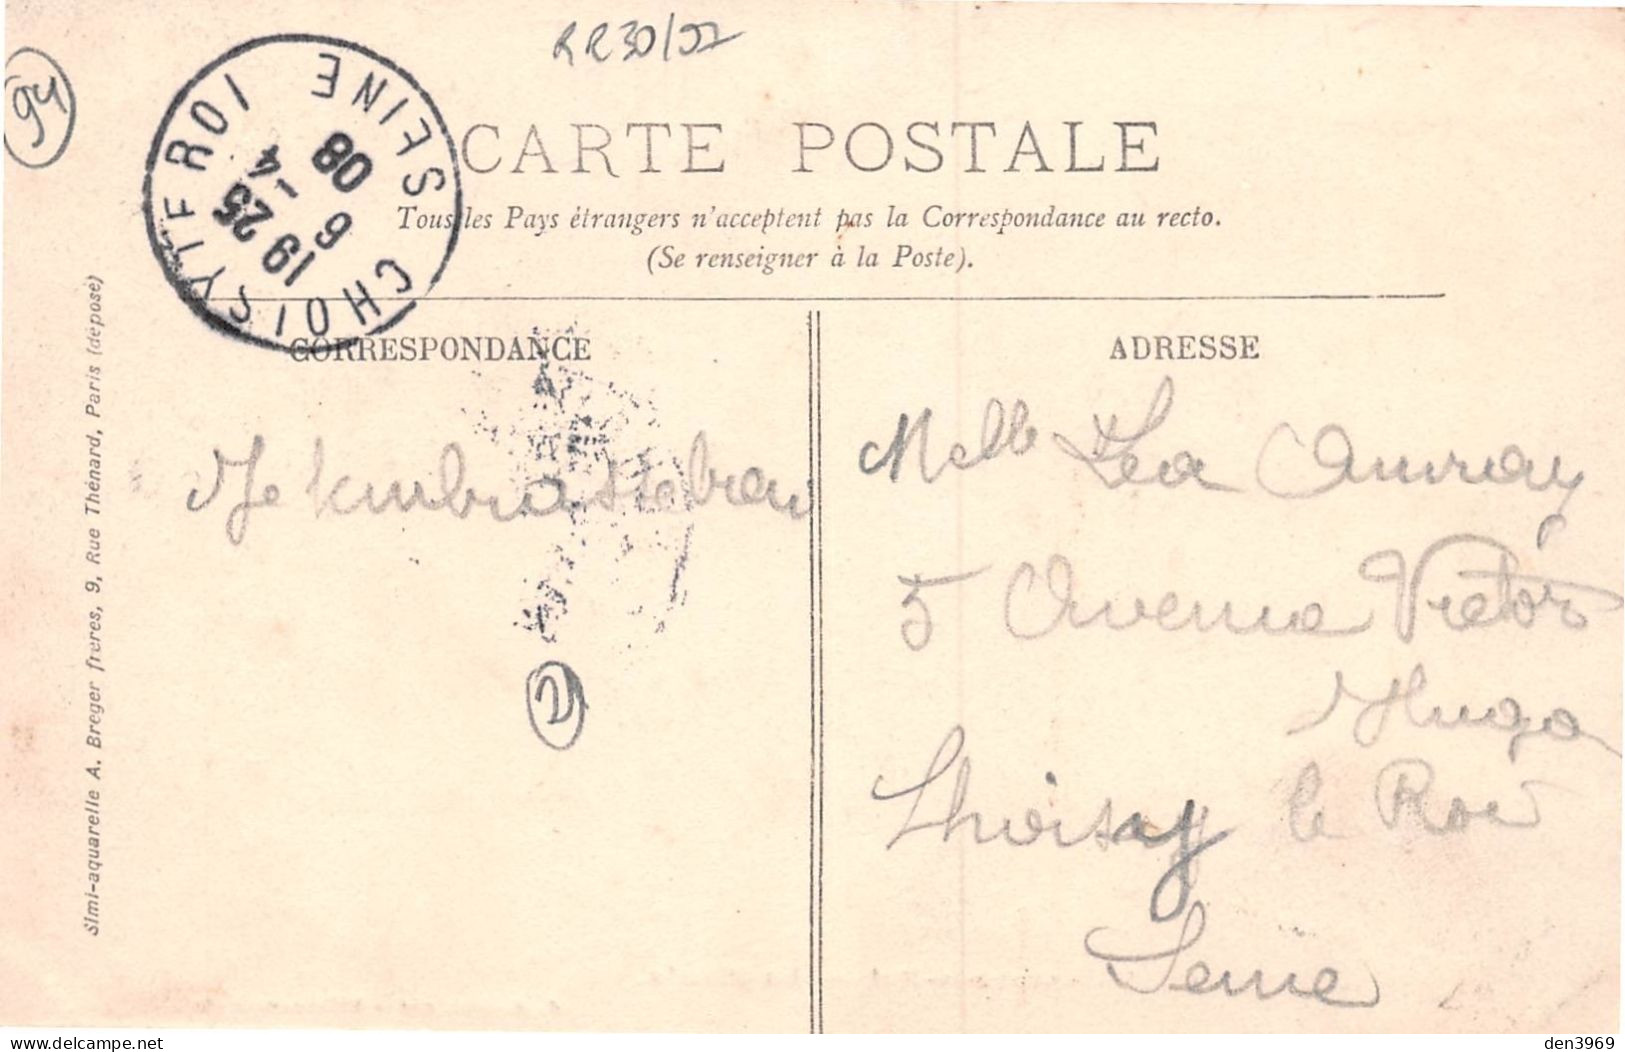 RR30/97
94
CHOISY LE ROI SEINE
19 25
6 -4
08
CARTE POSTALE
Tous les Pays étrangers n'acceptent pas la Correspondance au recto.
(Se renseigner à la Poste).
CORRESPONDANCE
Je t'embrasse bien
2
ADRESSE
Melle Léa Auvray
5 Avenue Victor
Hugo
Choisy le Roi
Seine
Simi-aquarelle A. Breger frères, 9, Rue Thénard, Paris (déposé)
den3969